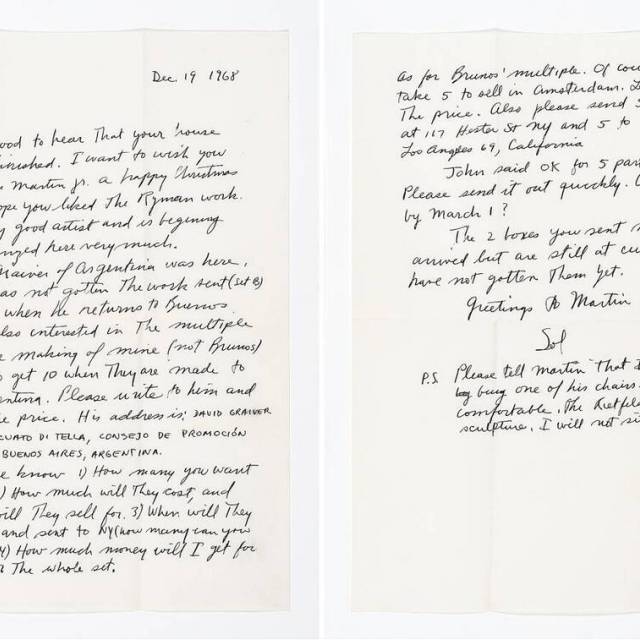 Dec. 19 1968
ood to hear That your house
inished. I want to wish you
Martin Jr. a happy Christmas
ope you liked The Ryman work.
y good artist and is begining
nized here very much.
Graiver of Argentina was here.
as not gotten The work sent (set B)
when He returns to Buenos
lso interested in The multiple
e making of mine (not Brunos)
o get 10 when They are made to
entina. Please write to him and
e price. His address is; DAVID GRAIVER
CUATO DI TELLA, CONSEJO DE PROMOCIÓN
BUENOS AIRES, ARGENTINA.
e know 1) How many you want
) How much will They cost, and
ill They sell for. 3) When will They
and sent to NY (how many can you
4) How much money will I get for
The whole set.
as for Brunos' multiple. Of cou
take 5 to sell in Amsterdam. L
The price. Also please send 5
at 117 Hester St NY and 5 to
Los Angeles 69, California
John said OK for 5 par
Please send it out quickly. C
by March 1?
The 2 boxes you sent
arrived but are still at cu
have not gotten Them yet.
Greetings to Martin
Sol
P.S. Please tell Martin That I
buy one of his chairs.
comfortable. The Rietfel
sculpture. I will not si